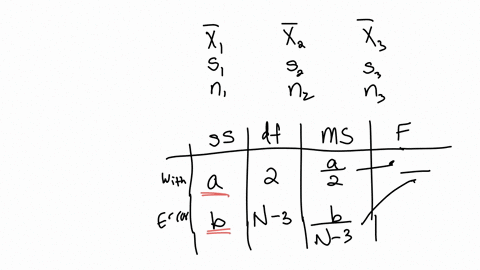 X̄₁ X̄₂ X̄₃
s₁ s₂ s₃
n₁ n₂ n₃
SS df MS F
With a 2 a/2
Error b N-3 b/N-3